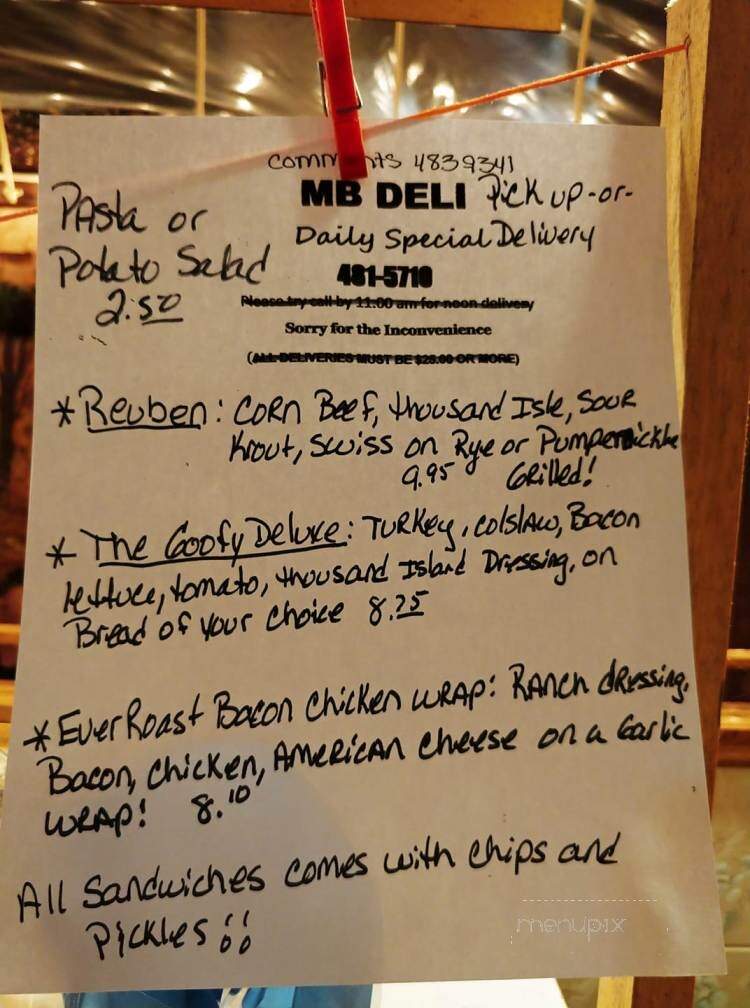 comments 4839341
MB DELI Pick up -or-
Daily Special Delivery
481-5710
Please try call by 11:00 am for noon delivery
Sorry for the Inconvenience
(ALL DELIVERIES MUST BE $25.00 OR MORE)
Pasta or
Potato Salad
2.50
* Reuben: Corn Beef, thousand Isle, Sour
Krout, Swiss on Rye or Pumpernickle
9.95 Grilled!
* The Goofy Deluxe: Turkey, colslaw, Bacon
lettuce, tomato, thousand Island Dressing, on
Bread of your choice 8.25
* EverRoast Bacon Chicken wrap: Ranch dressing,
Bacon, Chicken, American Cheese on a Garlic
wrap! 8.10
All Sandwiches comes with chips and
Pickles!!
menupix